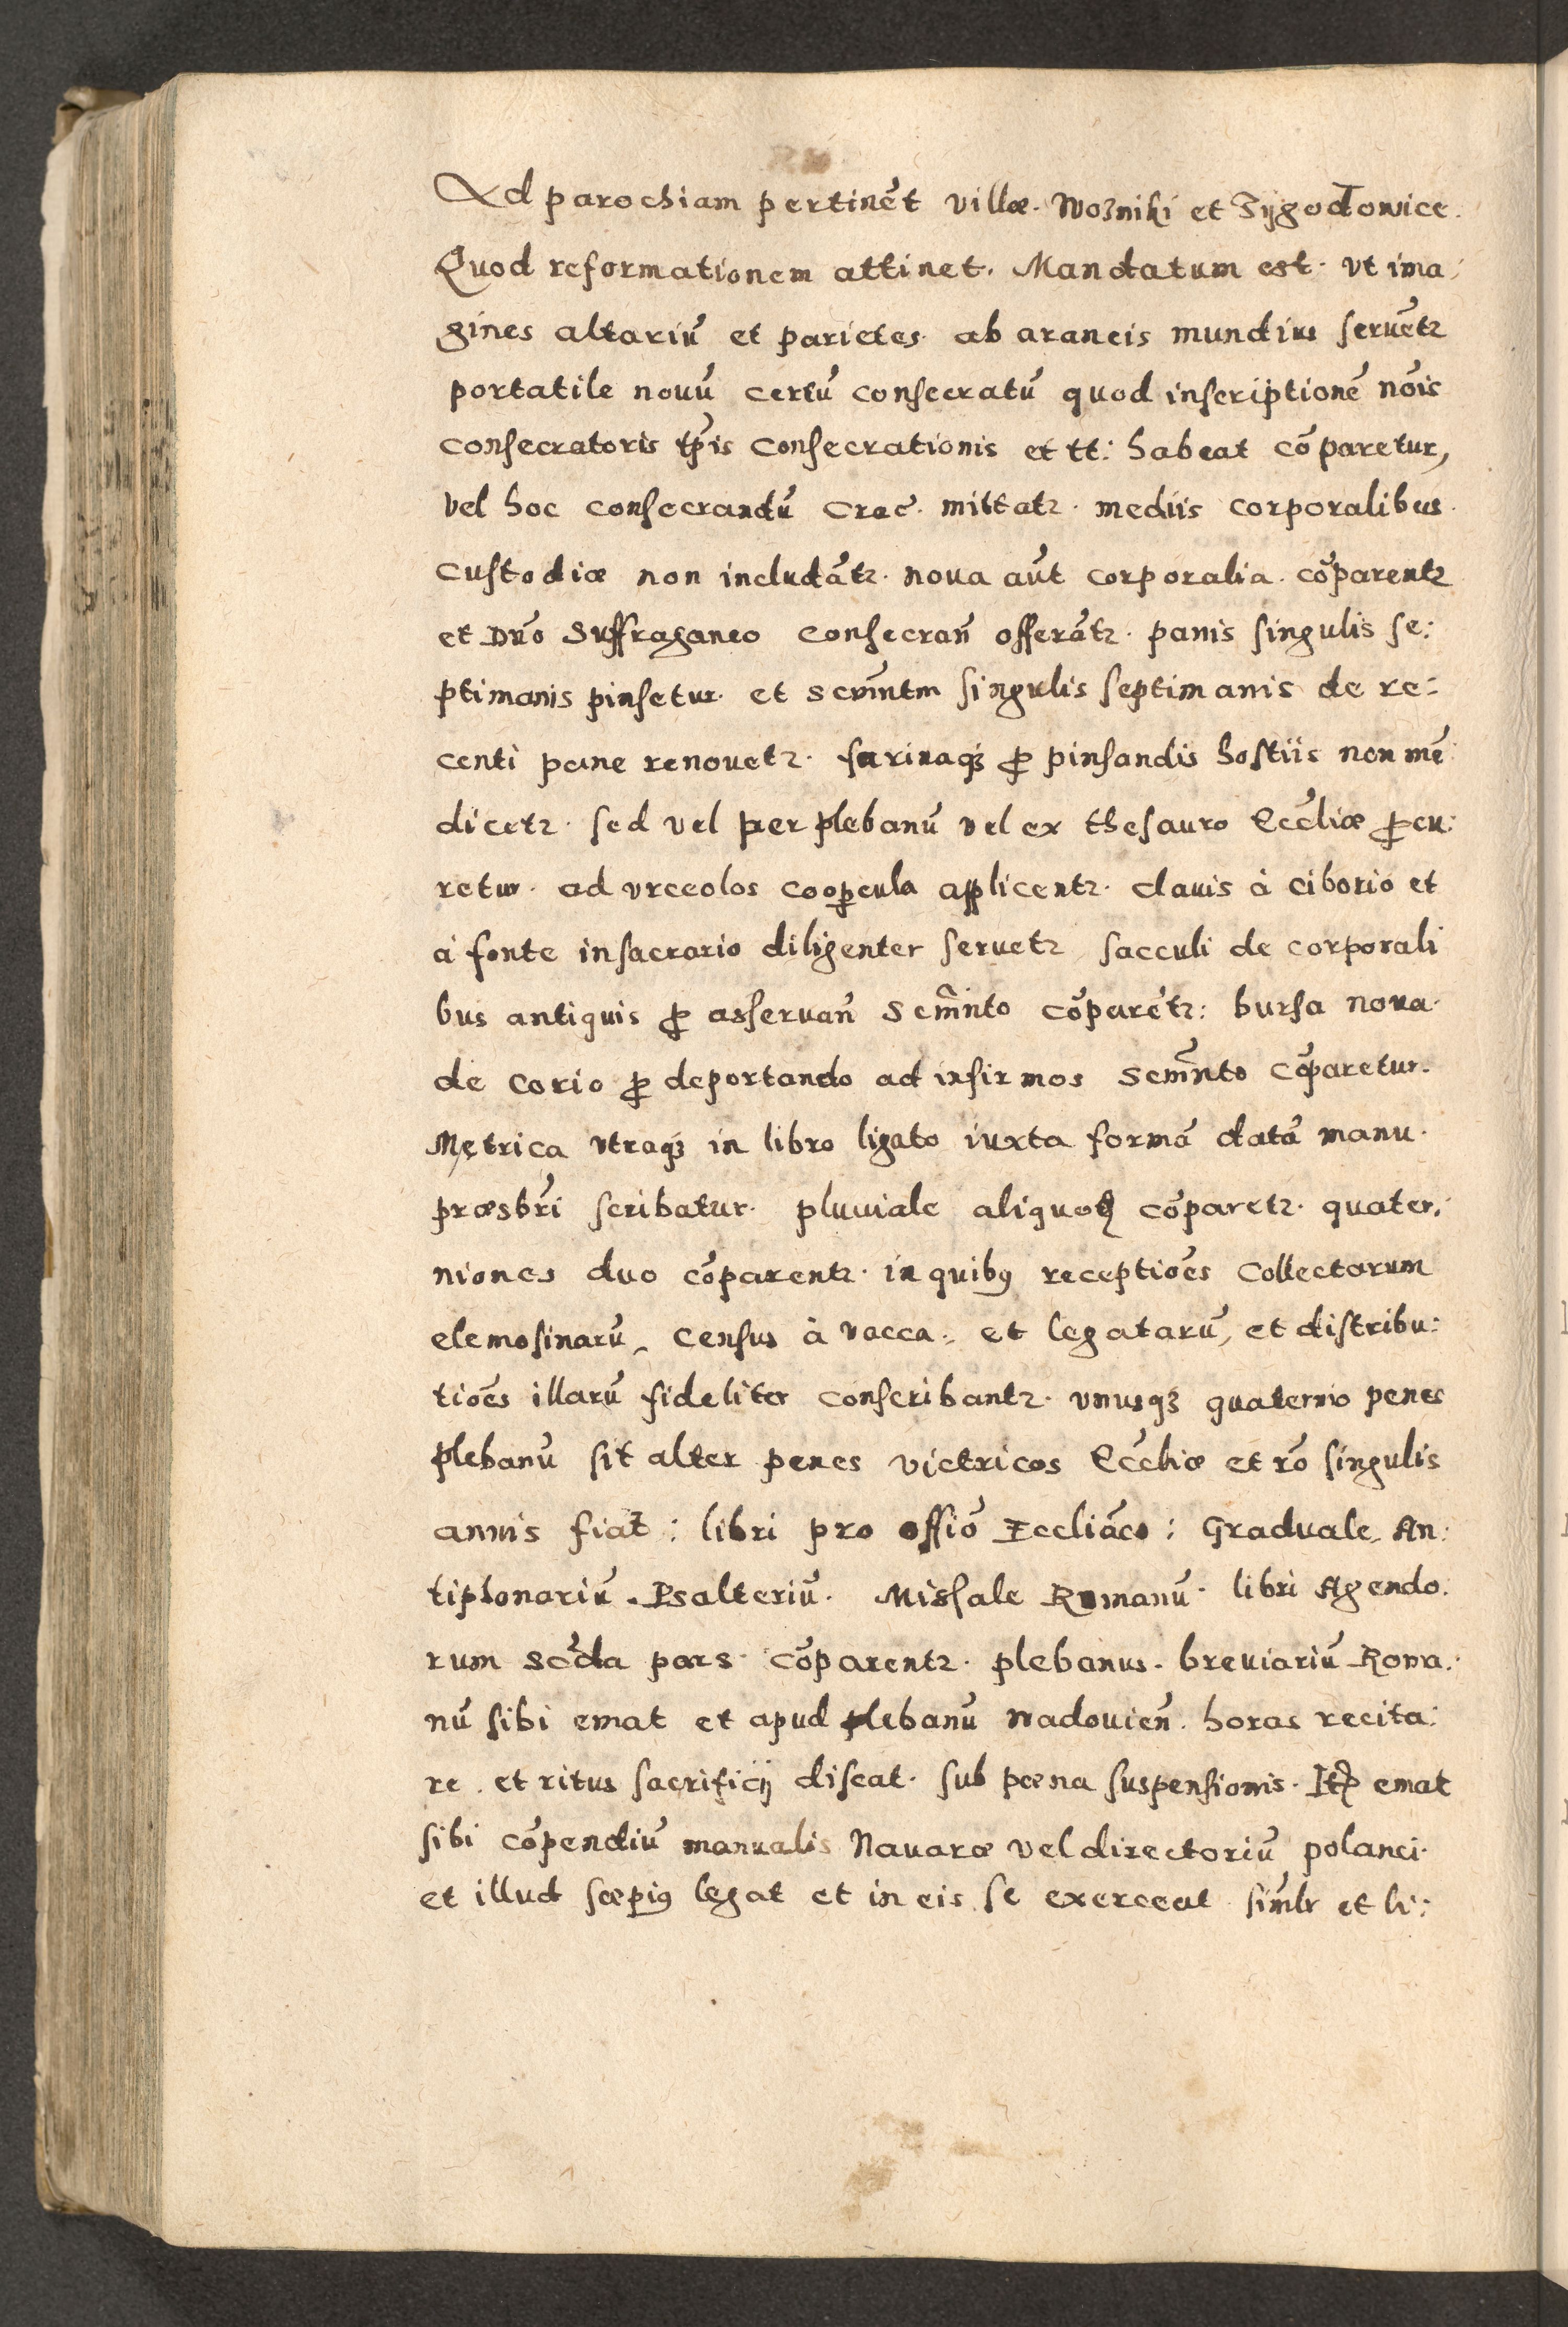 Ad parochiam pertinēt villæ. Wozniki et Tÿgodowice.
Quod reformationem attinet. Mandatum est. vt ima:
gines altariū et parietes. ab araneis mundius seruētꝛ
portatile nouū certū consecratū quod inscriptionē nōis
consecratoris tp̄is consecrationis et tt: habeat cōparetur,
vel hoc consecrandū Crac. mittatꝛ. mediis corporalibus.
custodiæ non includātꝛ. noua aūt corporalia. cōparentꝛ
et Dn̄o Suffraganeo consecran̄ offerātꝛ. panis singulis se:
ptimanis pinsetur. et Scrm̄ntm singulis septimanis de re:
centi pane renouetꝛ. farinaqꝫ ꝓ pinsandis hostiis non mē:
dicetꝛ. sed vel per plebanū vel ex thesauro Eccl̄iæ ꝓcu:
retur. ad vrceolos coop̱cula applicentꝛ. clauis à ciborio et
à fonte in sacrario diligenter seruetꝛ, sacculi de corporali
bus antiquis ꝓ asseruan̄ Scrm̄nto cōparētꝛ: bursa noua.
de corio ꝓ deportando ad infirmos Scrm̄nto cōparetur.
Mętrica vtraqꝫ in libro ligato iuxta formā datā manu.
præsbr̄i scribatur. pluuiale aliquod cōparetꝛ. quater:
niones duo cōparentꝛ. in quibꝰ receptiōes collectarum
elemosinarū, census à vacca., et legatarū, et distribu:
tiōes illarū fideliter conscribantꝛ. vnusqꝫ quaternio penes
plebanū sit alter penes victricos Eccl̄iæ et rō singulis
annis fiat: libri pro offiō Eccliāco: Graduale, An:
tiphonariū. Psalteriū. Missale Romanū. libri Agendo.
rum Scd̄a pars. cōparentꝛ. plebanus. breuiariū Roma.
nū sibi emat et apud plebanū Wadouien̄. horas recita:
re. et ritus sacrificÿ discat. sub pœna suspensionis. Itꝫ emat
sibi cōpendiū manualis Nauaræ vel directoriū polanci.
et illud sæpiꝰ legat et in eis se exerceat siml̄r et li: